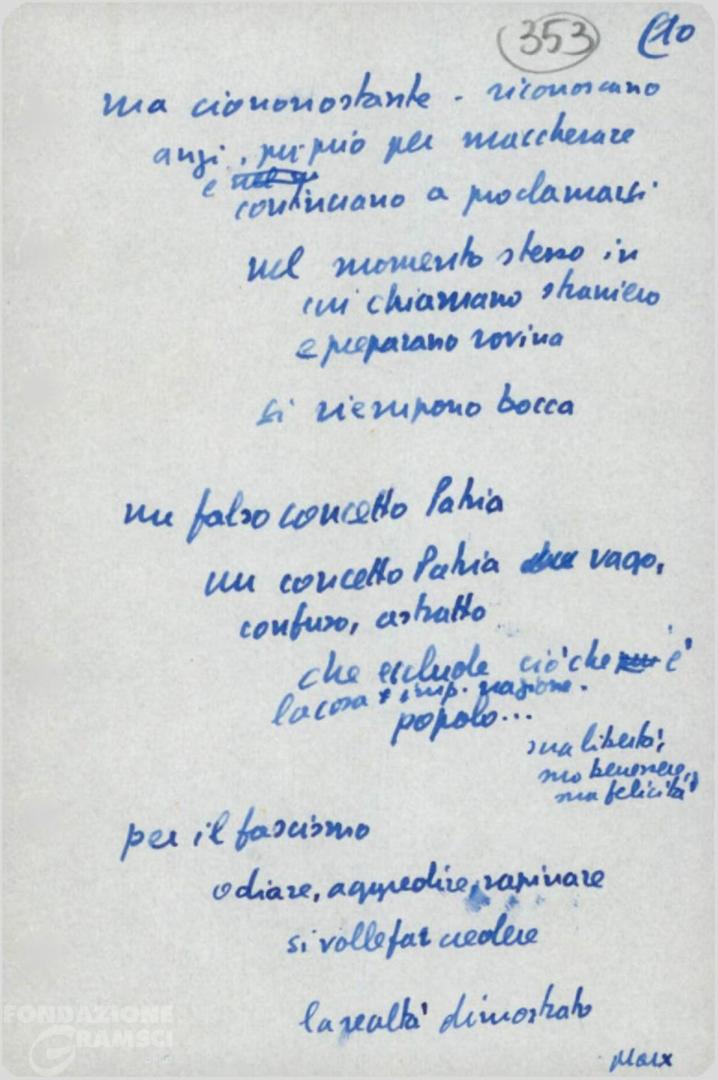 353 (10
ma ciononostante - riconoscano
anzi, proprio per mascherare
e
continuano a proclamarsi
nel momento stesso in
cui chiamano straniero
e preparano rovina
si riempono bocca
un falso concetto Patria
un concetto Patria vago,
confuso, astratto
che esclude ciò che è
la cosa + imp. nazione.
popolo...
sua libertà,
suo benessere,
sua felicità
per il fascismo
odiare, aggredire, rapinare
si volle far credere
la realtà dimostrato
Marx
FONDAZIONE
GRAMSCI